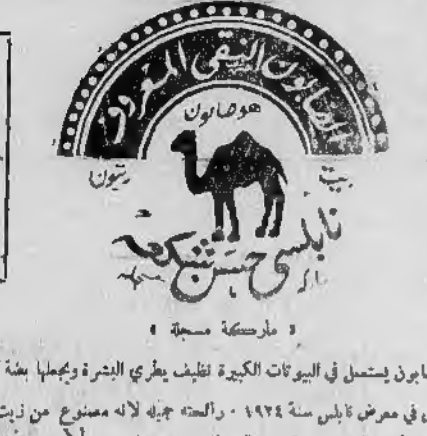 الصابون النقي المعروف
هو صابون
زيت زيتون
نابلسي حسن شكعة
ماركة مسجلة
« ماركة مسجلة »
صابون يستعمل في البيوتات الكبيرة نظيف يطري البشرة ويجعلها بضة
في معرض نابلس سنة ١٩٢٤ - رائحته جميلة لانه مصنوع من زيت